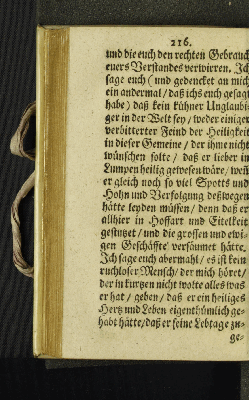 216.
und die euch den rechten Gebrauch
euers Verstandes verwirren. Ich
sage euch (und gedencket an mich
ein andermal / daß ichs euch gesagt
habe) daß kein kühner Unglaubi-
ger in der Welt sey / weder einiger
verbitterter Feind der Heiligkeit
in dieser Gemeine / der ihme nicht
wünschen solte / daß er lieber in
Lumpen heilig gewesen wäre / wenn
er gleich noch so viel Spotts und
Hohn und Verfolgung deßwegen
hätte leyden müssen / denn daß er
allhier in Hoffart und Eitelkeit
gestutzet / und die grossen und ewi-
gen Geschäffte versäumet hätte.
Ich sage euch abermahl / es ist kein
ruchloser Mensch / der mich höret /
der in kurtzen nicht wolte alles was
er hat / geben / daß er ein heiliges
Hertz und Leben eigenthümlich ge-
habt hätte / daß er seine Lebtage zu-
ge-